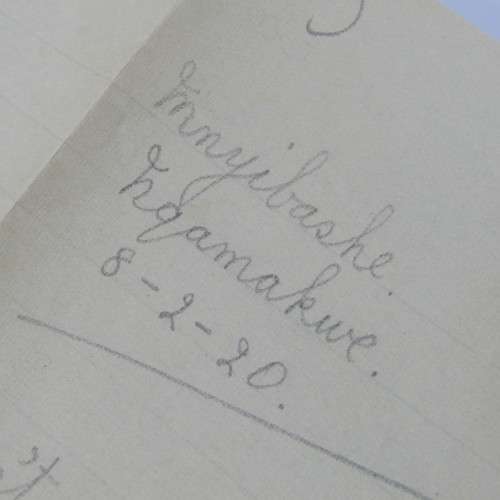 Mnyibashe.
Nqamakwe.
8-2-20.